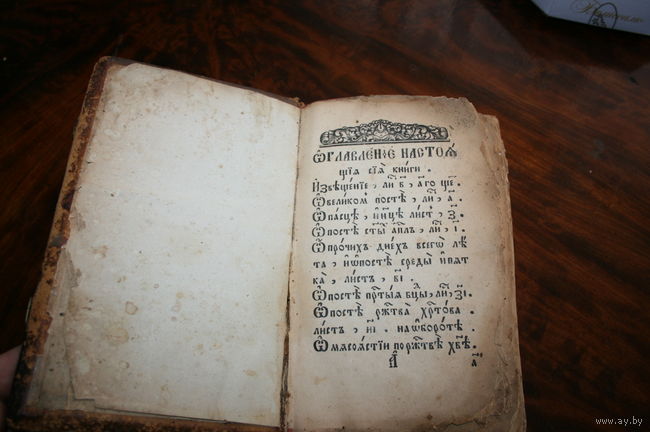 Ѡ҆главле́нїе настоѧ́
щїѧ сїѧ̀ кни́ги .
И҆звѣще́нїе , ли в҃ , а҆́гѡ ще .
Ѡ҆ вели́комъ постѣ̀ , ли , а҃ .
Ѡ҆ па́сцѣ , и҆ ни́цѣ ли́стъ , з҃ .
Ѡ҆ по́стѣ ст҃ы́ а҆пл҃ъ , ли , і҃ .
Ѡ҆ про́чихъ дне́хъ всегѡ̀ лѣ́
та , и҆ ѡ҆ по́стѣ среды̀ и҆ пѧт
ка̀ , ли́стъ , в҃і .
Ѡ҆ по́стѣ пр҇ты́ѧ бц҃ы , ли , з҃і .
Ѡ҆ по́стѣ рж҇тва̀ хр҇то́ва .
ли́стъ , н҃і . на ѡ҆боро́тѣ .
Ѡ҆ мѧсоѧ́стїи по рж҇твѣ̀ хв҃ѣ .
а҃
www.ay.by